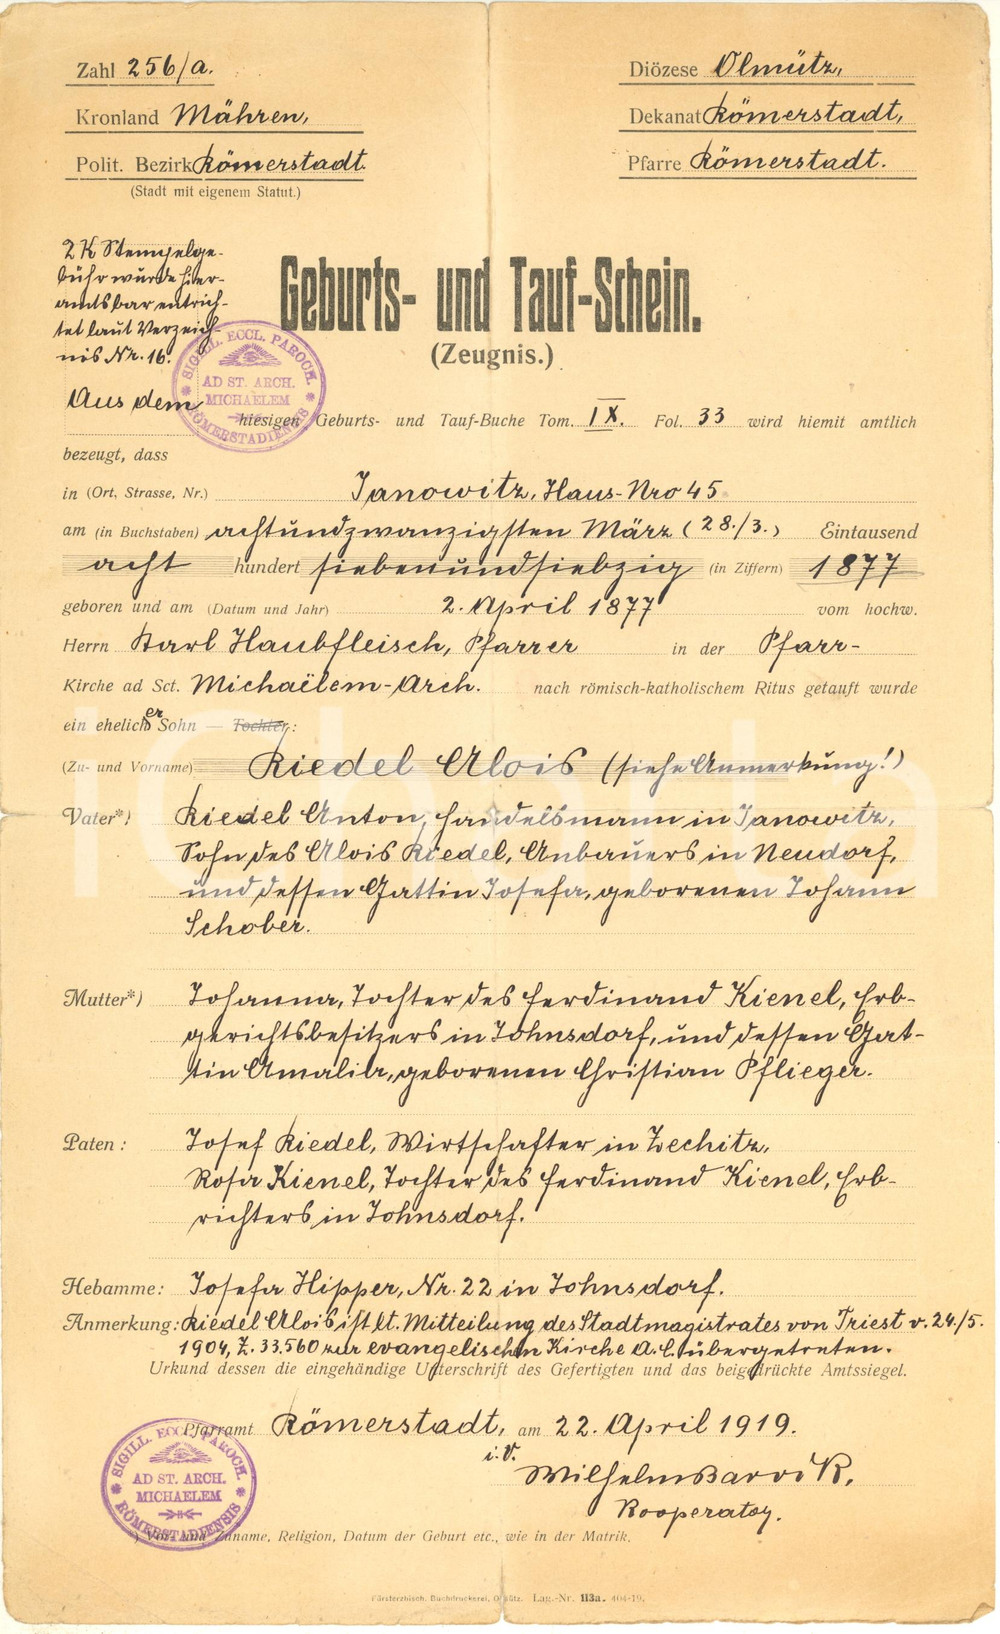 Zahl 256/a.
Kronland Mähren,
Polit. Bezirk Römerstadt.
(Stadt mit eigenem Statut.)
Diözese Olmütz,
Dekanat Römerstadt,
Pfarre Römerstadt.
2 K Stempelge-
bühr wurde hier-
amts bar entrich-
tet laut Verzeich-
nis Nr. 16.
Geburts- und Tauf-Schein.
(Zeugnis.)
SIGILL. ECCL. PAROCH.
AD ST. ARCH.
MICHAELEM
RÖMERSTADIENSIS
Aus dem
hiesigen Geburts- und Tauf-Buche Tom. IX. Fol. 33 wird hiemit amtlich
bezeugt, dass
in (Ort, Strasse, Nr.) Janowitz, Haus-Nro 45
am (in Buchstaben) achtundzwanzigsten März (28./3.) Eintausend
acht hundert siebenundsiebzig (in Ziffern) 1877
geboren und am (Datum und Jahr) 2. April 1877 vom hochw.
Herrn Karl Haubfleisch, Pfarrer in der Pfarr-
Kirche ad Sct. Michaëlem-Arch. nach römisch-katholischem Ritus getauft wurde
ein ehelicher Sohn — Tochter:
(Zu- und Vorname) Riedel Alois (siehe Anmerkung!)
Vater*) Riedel Anton, Handelsmann in Janowitz,
Sohn des Alois Riedel, Anbauers in Neudorf,
und dessen Gattin Josefa, geborenen Johann
Schober.
Mutter*) Johanna, Tochter des Ferdinand Kienel, Erb-
gerichtsbesitzers in Johnsdorf, und dessen Gat-
tin Amalia, geborenen Christian Pflieger.
Paten: Josef Riedel, Wirtschafter in Zechitz,
Rosa Kienel, Tochter des Ferdinand Kienel, Erb-
richters in Johnsdorf.
Hebamme: Josefa Hipper, Nr. 22 in Johnsdorf.
Anmerkung: Riedel Alois ist lt. Mitteilung des Stadtmagistrates von Triest v. 24/5.
1904, Z. 33.560 zur evangelischen Kirche A. C. übergetreten.
Urkund dessen die eingehändige Unterschrift des Gefertigten und das beigedrückte Amtssiegel.
Pfarramt Römerstadt, am 22. April 1919.
i. V.
Kooperator.
SIGILL. ECCL. PAROCH.
AD ST. ARCH.
MICHAELEM
RÖMERSTADIENSIS
*) Vor- und Zuname, Religion, Datum der Geburt etc., wie in der Matrik.
Fürsterzbisch. Buchdruckerei, Olmütz. Lag.-Nr. 113a. 404-19.